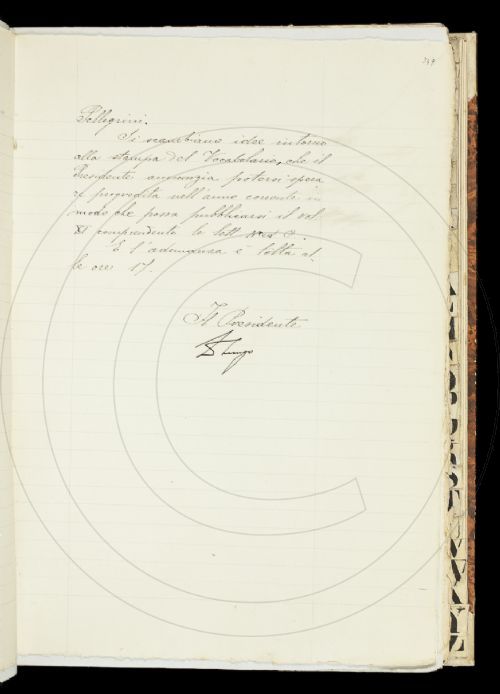 349
Pellegrini.
Si scambiano idee intorno
alla stampa del Vocabolario, che il
Presidente annunzia potersi spera
re progredita nell'anno corrente in
modo che possa pubblicarsi il vol.
XI comprendente le lett. N ed O.
E l'adunanza è tolta al
le ore 17.
Il Presidente